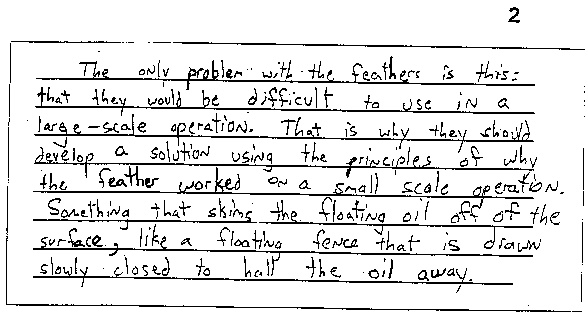 2
The only problem with the feathers is this:
that they would be difficult to use in a
large-scale operation. That is why they should
develop a solution using the principles of why
the feather worked on a small scale operation.
Something that skims the floating oil off of the
surface, like a floating fence that is drawn
slowly closed to hall the oil away.